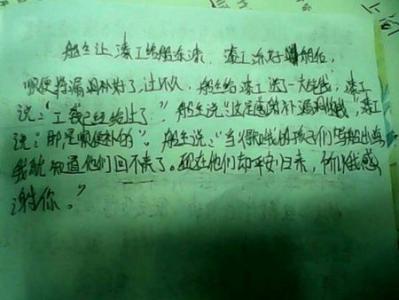 船主让漆工给船涂漆。漆工涂好船后,
顺便将漏洞补好了。过不久,船主给漆工送了一大笔钱。漆工
说:"工钱已经给过了"。船主说:"这是感谢补漏洞的钱",漆工
说:"那是顺便补的"。船主说:"当得知我的孩子们驾船出海
我就知道他们回不来了。现在他们却平安归来,所以我感
谢你。"